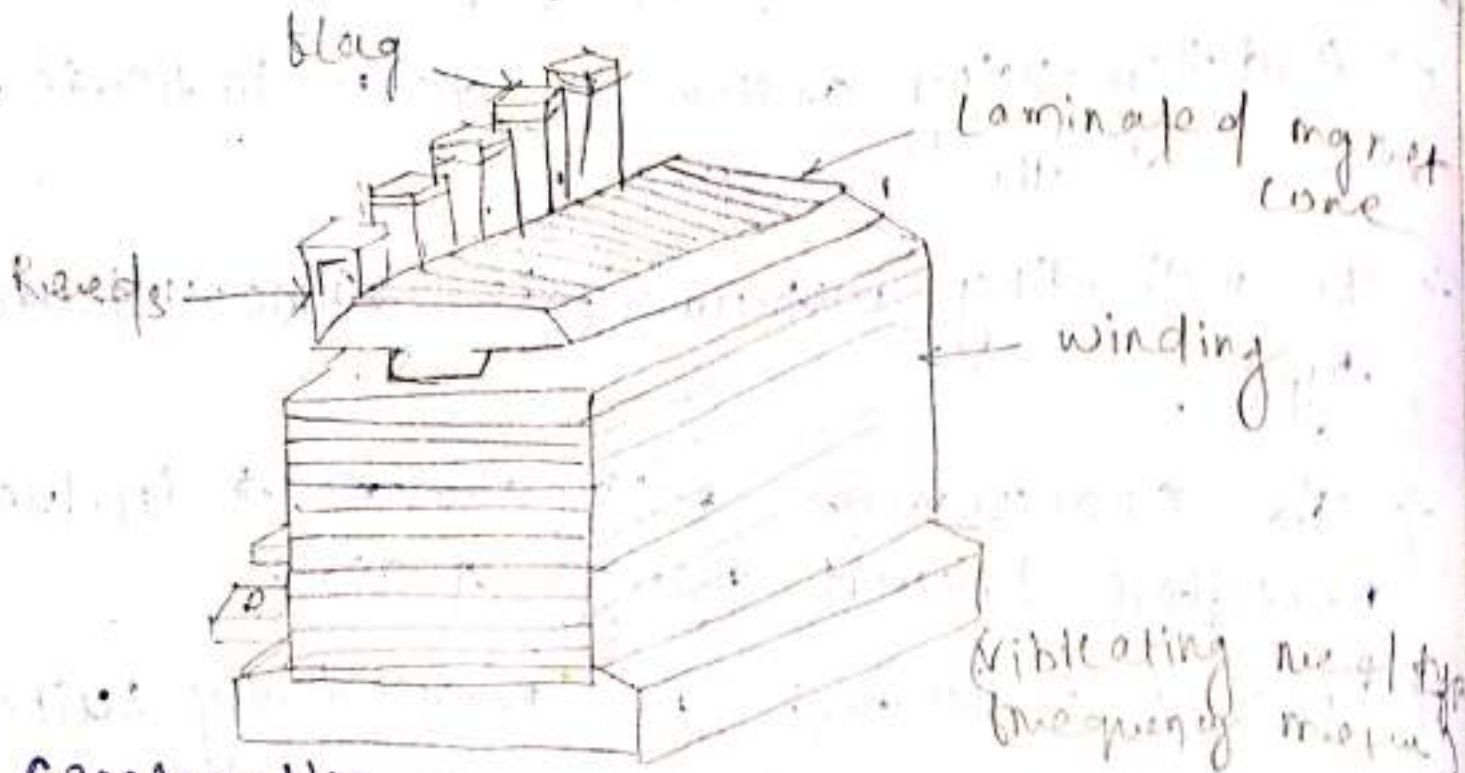 blag
Laminated mgnet
core
Reeds
winding
(vibreating reed typ
frequency meter)
Construction